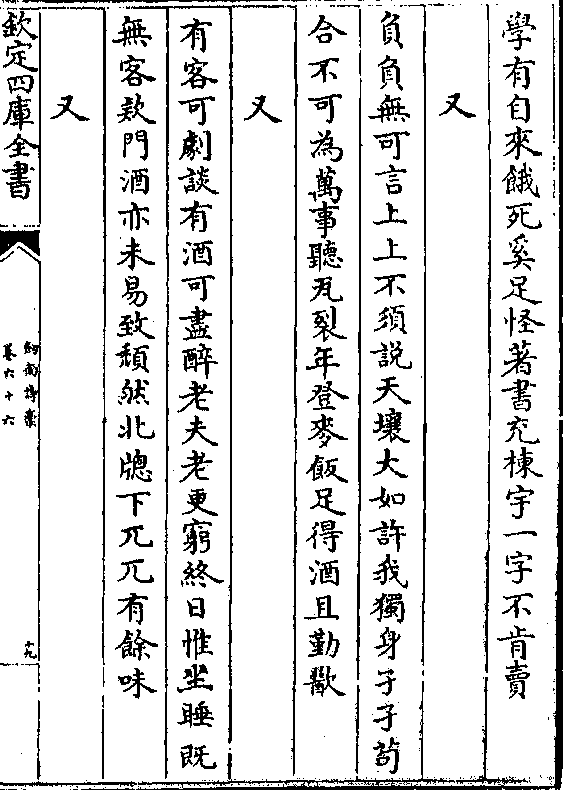 學有自來餓死奚足怪著書充棟宇一字不肯賣
又
負負無可言上上不須説天壤大如許我獨身孑孑茍
合不可為萬事聽瓦裂年登麥飯足得酒且勤歠
又
有客可劇談有酒可盡醉老夫老更窮終日惟坐睡既
無客欵門酒亦未易致頽然北牕下兀兀有餘味
又
欽定四庫全書
劍南詩槀
卷六十六
十九